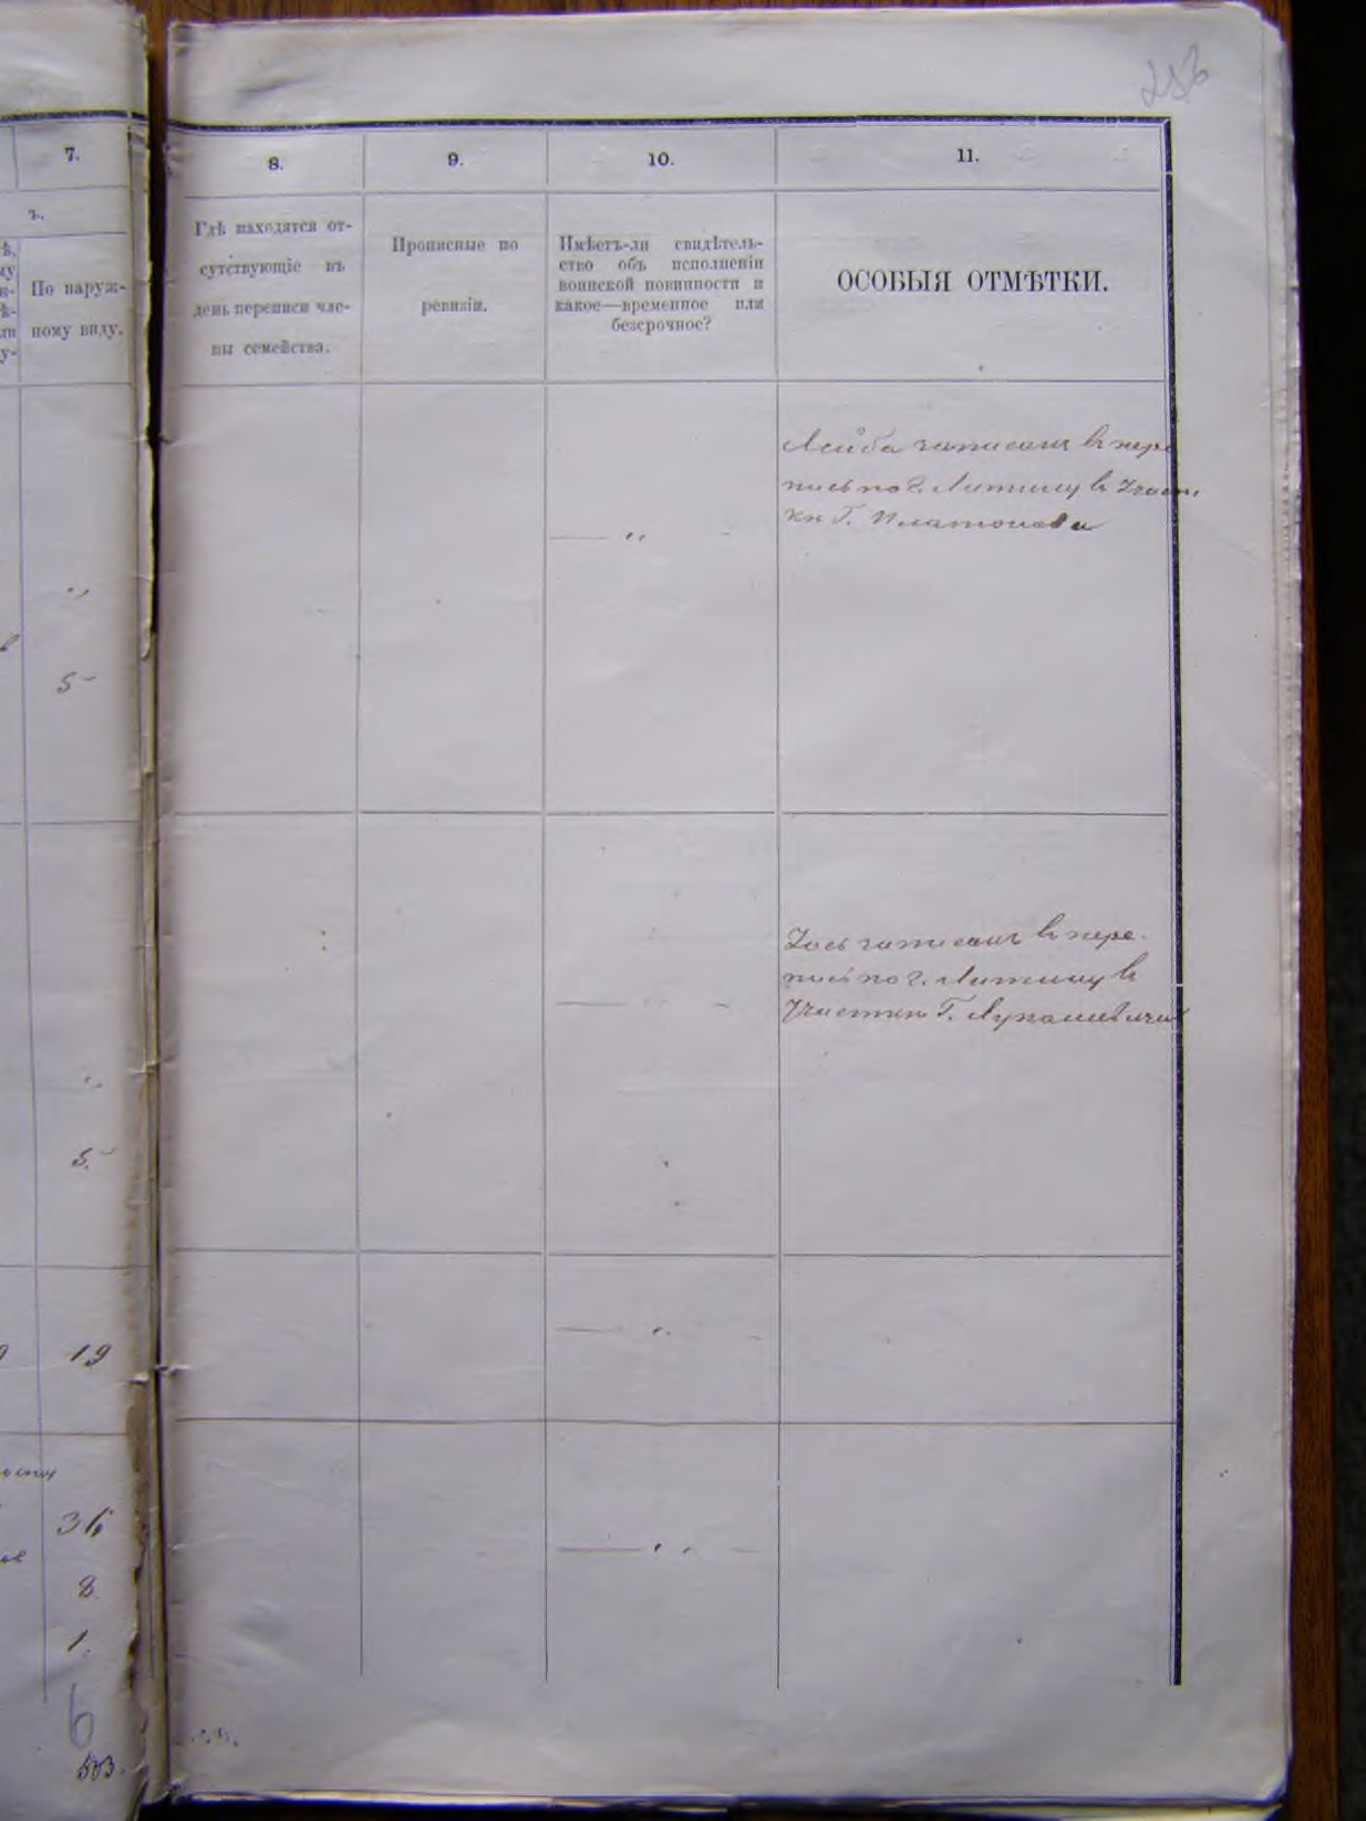 253
7.
8.
9.
10.
11.
ъ.
По наруж-
ному виду.
Гдѣ находятся от-
сутствующіе въ
день переписи чле-
ны семейства.
Прописные по
ревизіи.
Имѣетъ-ли свидѣтель-
ство объ исполненіи
воинской повинности и
какое—временное или
безсрочное?
ОСОБЫЯ ОТМѢТКИ.
Лейба записанъ въ пере
пись по г. Литину въ Участ
кѣ Г. Платонова
5
Іось записанъ въ пере-
пись по г. Литину въ
Участкѣ Г. Лукашевича
5.
19
36
8.
1.
6
503.